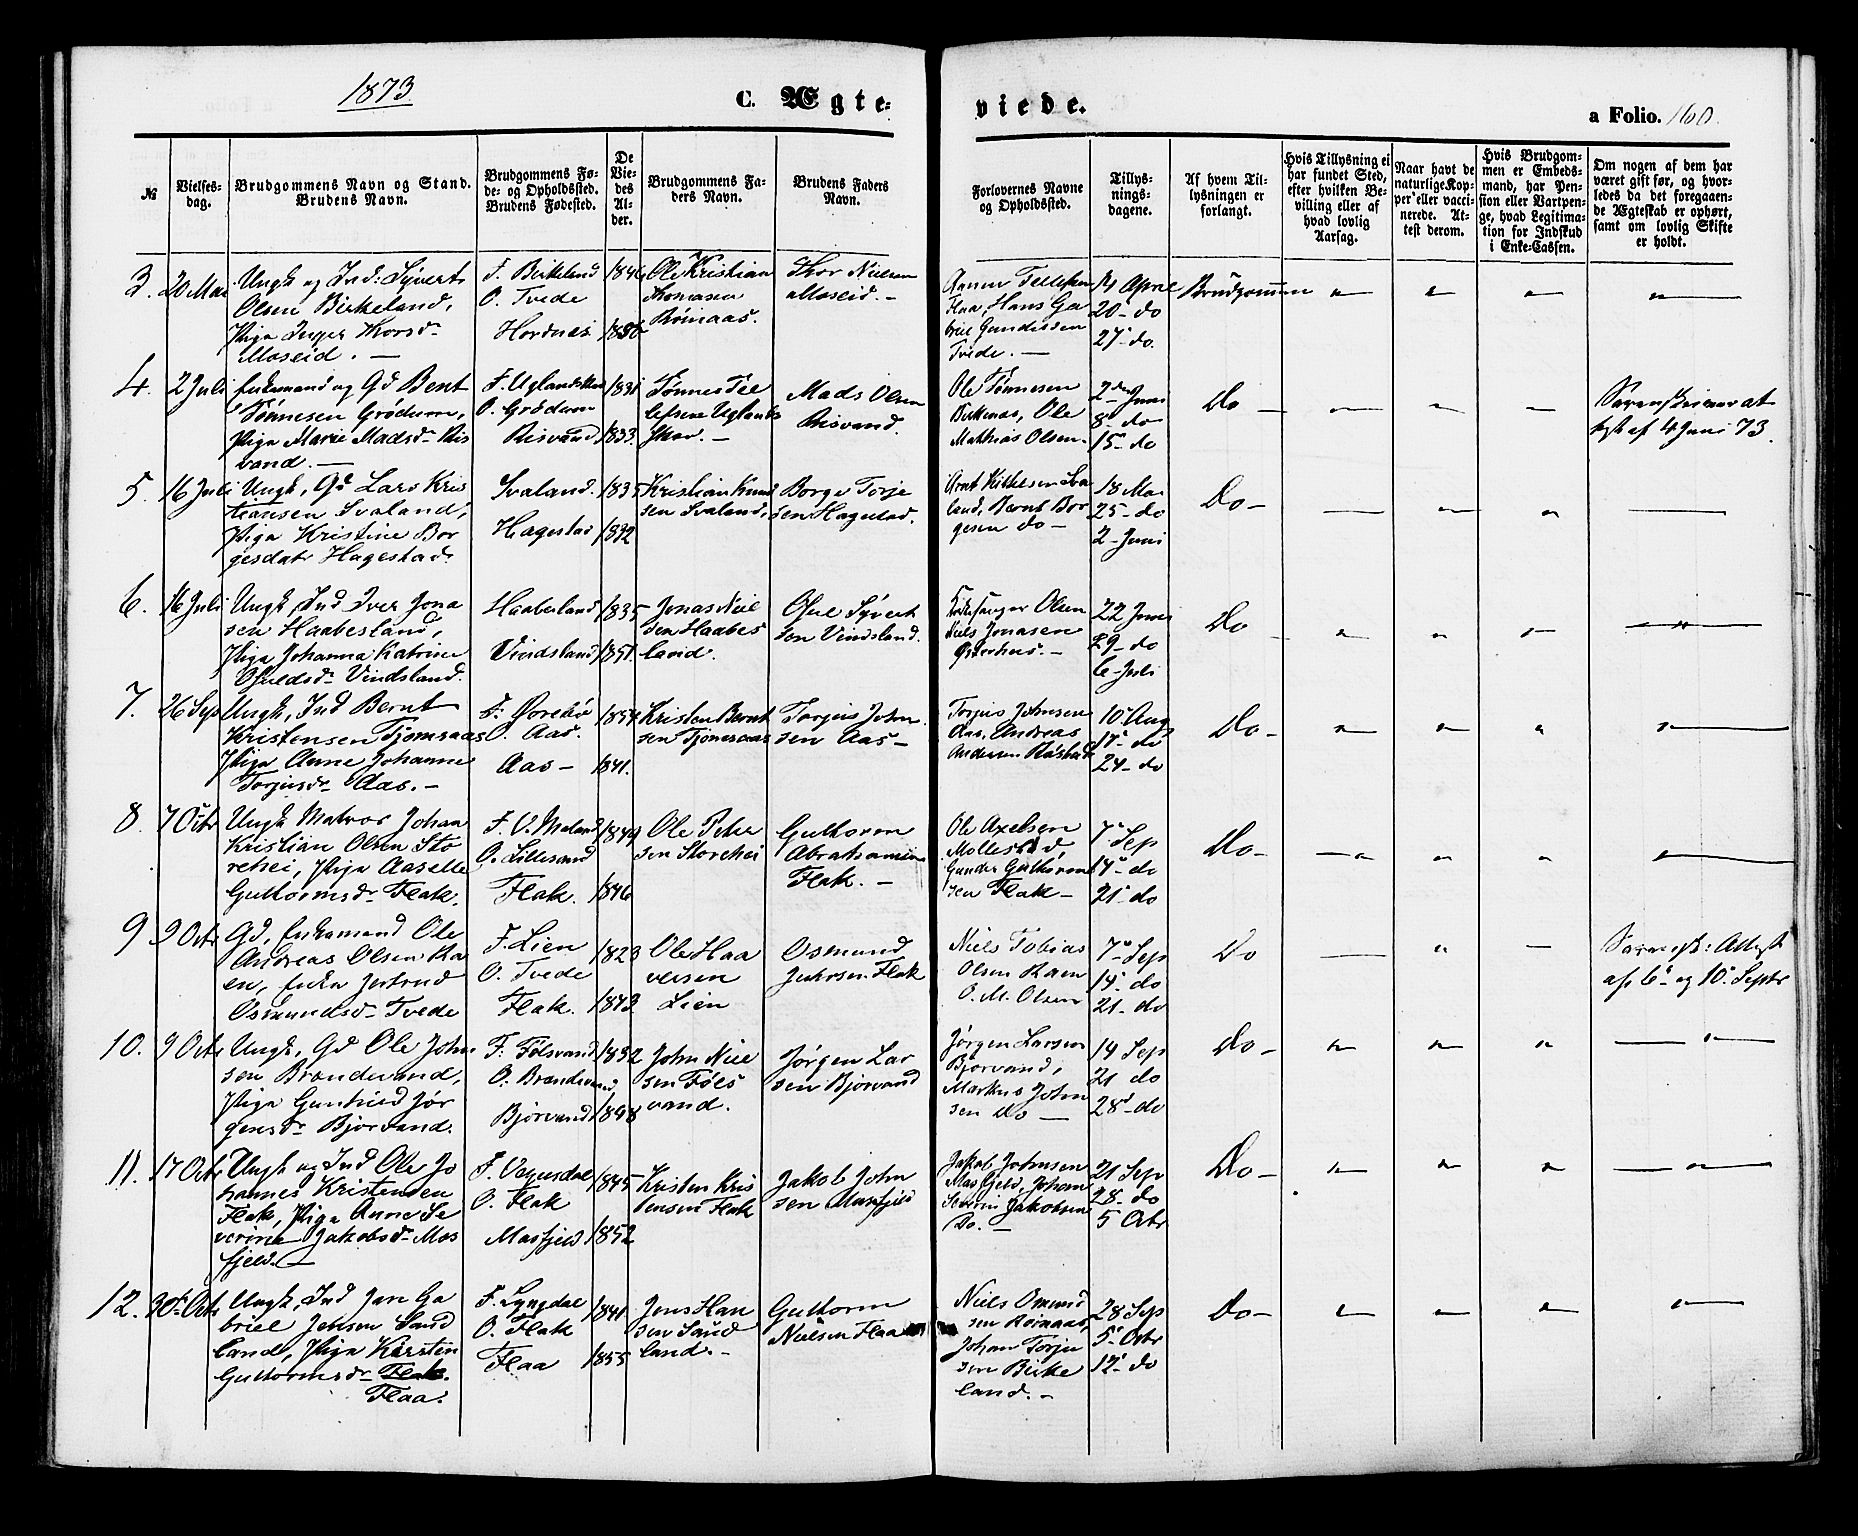 1873
C. Ægte-
viede.
a Folio. 160.
№
Vielses-
dag.
Brudgommens Navn og Stand.
Brudens Navn.
Brudgommens Fø-
de- og Opholdssted.
Brudens Fødested.
De
Vie-
des
Al-
der.
Brudgommens Fa-
ders Navn.
Brudens Faders
Navn.
Forlovernes Navne
og Opholdssted.
Tillys-
nings-
dagene.
Af hvem Til-
lysningen er
forlangt.
Hvis Tillysning ei
har fundet Sted,
efter hvilken Be-
villing eller af
hvad lovlig
Aarsag.
Naar havt de
naturlige Kop-
per eller vacci-
nerede. At-
test derom.
Hvis Brudgom-
men er Embeds-
mand, har Pen-
sion eller Vartpen-
ge, hvad Legitima-
tion for Indskud
i Enke-Cassen.
Om nogen af dem har
været gift før, og hvor-
ledes da det foregaaen-
de Ægteskab er ophørt,
samt om lovlig Skifte
er holdt.
3. 20 Mai
Ungk og Ind: Syvert
Olsen Birkeland,
Pige Inger Thorsd
Moseid. —
F. Birkeland
O. Tvede
Hordnes
1846
Ole Kristian
Thomasen
Röinaas.
Thor Nielsen
Moseid. —
Flaa, Hans Ga
briel Gundersen
Tvede. —
April
20- do
27- do.
Brudgommen
4. 2 Juli
Enkemand og Gd Bent
Tönnesen Grödum,
Pige Marie Madsd Ris
vand. —
O. Grödum
Risvand
1831
1833.
Tønnes Tel
lefsen Uglands
Skov. —
Mads Olsen
Risvand.
Ole Tønnesen
Birkenes, Ole
Mathias Olsen
2 Juni
8- do
15- do
Do —
af 4 Juni 73.
5. 16 Juli
Ungk, Gd Lars Kris
tiansen Svaland,
Pige Kristine Bor
gesdatr Hagestad.
Svaland.
Hagestad
1835
Kristian Knud
sen Svaland,
Borge Torje
sen Hagestad.
land, Bernt Bor
gesen do —
18 Mai
25- do
2- Juni
Do —
6. 16 Juli
Ungk, Ind Iver Jona
sen Haabesland,
Pige Johanna Katrine
Ofveldsd Vindsland.
Haabesland
Vindsland
1835
1851.
Jonas Niel
sen Haabes
land.
Syvert
sen Vindsland.
Kirkesanger Olsen
Niels Jonasen
Østerhus. —
22 Juni
29- do
6- Juli
Do
7. 26 Sep
Ungk, Ind Bernt
Kristensen Tjomsaas
Pige Anne Johanne
Torjusd Aas. —
O. Aas.
Aas —
1841.
Kristen Bernt
sen Tjomsaas
Torjus John
sen Aas —
Torjus Johnsen
Aas, Andreas
Andersen
10 Aug
17- do
24- do
Do —
8. 7 Octr
Ungk Matros Johan
Kristian Olsen Sto
rehei, Pige Aaselle
Guttormsd Flak.
O. Lillesand
Flak.
1849
1846
Ole Peter
sen Storehei
Guttorm
Abrahamsen
Flak. —
Ole Axelsen
Mollestad,
Gunder Guttorm
sen Flak —
7 Sep
14- do
21- do
Do —
9 9 Octr
Gd, Enkemand Ole
Andreas Olsen Ra
en, Enke Jertrud
Osmundsd Tvede
F. Lien
O. Tvede
Flak.
1823
Ole Haa
versen
Lien
Osmund
Flak
Niels Tobias
Olsen Raen
O. M. Olsen
7- Sep
14- do
21- do
Do
af 6 og 10 Septr
10. 9 Octr
Ungk, Gd Ole John
sen Brandevand,
Pige Gunhild Jør
gensd Bjorvand.
F. Fölsvand
Bjørvand
1832
1848
John Niel
sen Føls
vand.
Jørgen Lar
sen Bjorvand
Jørgen Larsen
Bjørvand,
Markus John
sen do —
14 Sep
21 do
28- do
Do —
11. 17 Octr
Ungk og Ind Ole Jo
hannes Kristensen
Flak, Pige Anne Se
verine Jakobsd Mos
fjeld. —
F. Vegusdal
O. Flak
Mosfjeld
1845
1852
Kristen Kris
tensen Flak
Jakob John
sen Mosfjeld
Jakob Johnsen
Mosfjeld, Johan
Severin Jakobsen
Do. —
21 Sep
28- do
5 Octr
Do —
12. 30 Octr
Ungk, Ind Jan Ga
briel Jensen Sand
land, Pige Kirsten
Guttormsd Flak.
Flaa.
F. Lyngdal
O. Flak
Flaa
1841
1855
Jens Han
sen Sand
land. —
Guttorm
Nielsen Flaa
Niels Omund
sen Roinaas,
Johan Torju
sen Birke
land. —
28 Sep
5 Octr
12- do
Do —